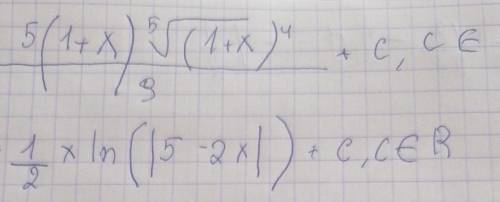 5(1+x) ⁵√(1+x)⁴ / 9 + C, C ∈
1/2 x ln(|5-2x|) + C, C ∈ R